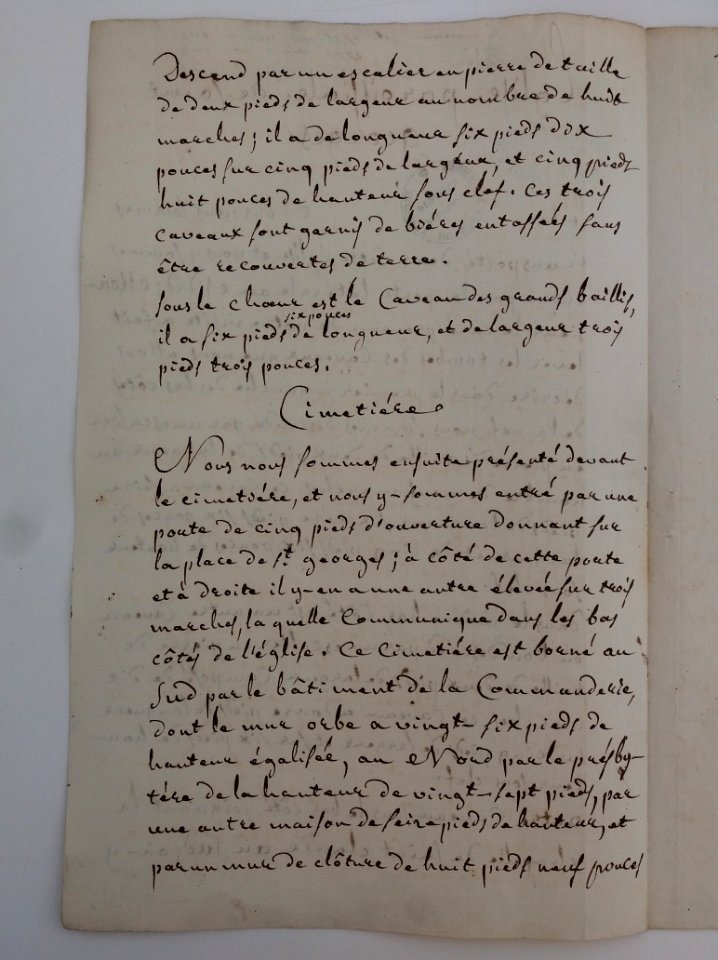 Descend par un escalier en pierre de taille
de deux pieds de largeur au nombre de huit
marches; il a de longueur six pieds dix
pouces sur cinq pieds de largeur, et cinq pieds
huit pouces de hauteur sous clef. Ces trois
caveaux sont garnis de biéres entassées sans
être recouvertes de terre.
sous le chœur est le Caveau des grands baillis,
six pouces
il a six pieds de longueur, et de largeur trois
pieds trois pouces.
Cimetiére
Nous nous sommes ensuite présenté devant
le cimetiére, et nous y-sommes entré par une
porte de cinq pieds d'ouverture donnant sur
la place de St. georges; à côté de cette porte
et à droite il y-en a une autre élevée sur trois
marches, la quelle Communique dans les bas
côtés de l'église. Ce Cimetiére est borné au
Sud par le bâtiment de la Commanderie,
dont le mur orbe a vingt-six pieds de
hauteur égalisée, au Nord par le présby-
tére de la hauteur de vingt-sept pieds, par
une autre maison de seize pieds de hauteur, et
par un mur de clôture de huit pieds neuf pouces